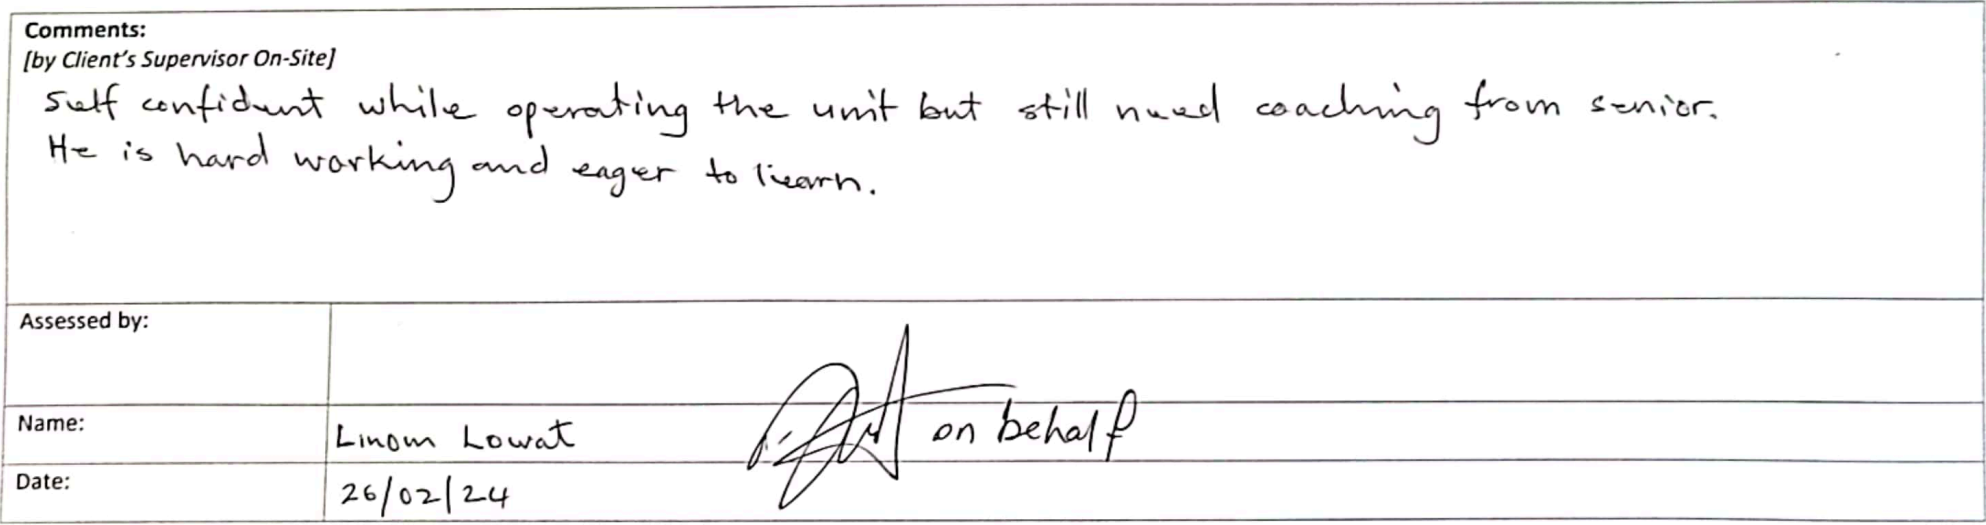 Comments:
[by Client's Supervisor On-Site]
Self confident while operating the unit but still need coaching from senior.
He is hard working and eager to learn.
Assessed by:
Name: Linom Lowat on behalf
Date: 26/02/24